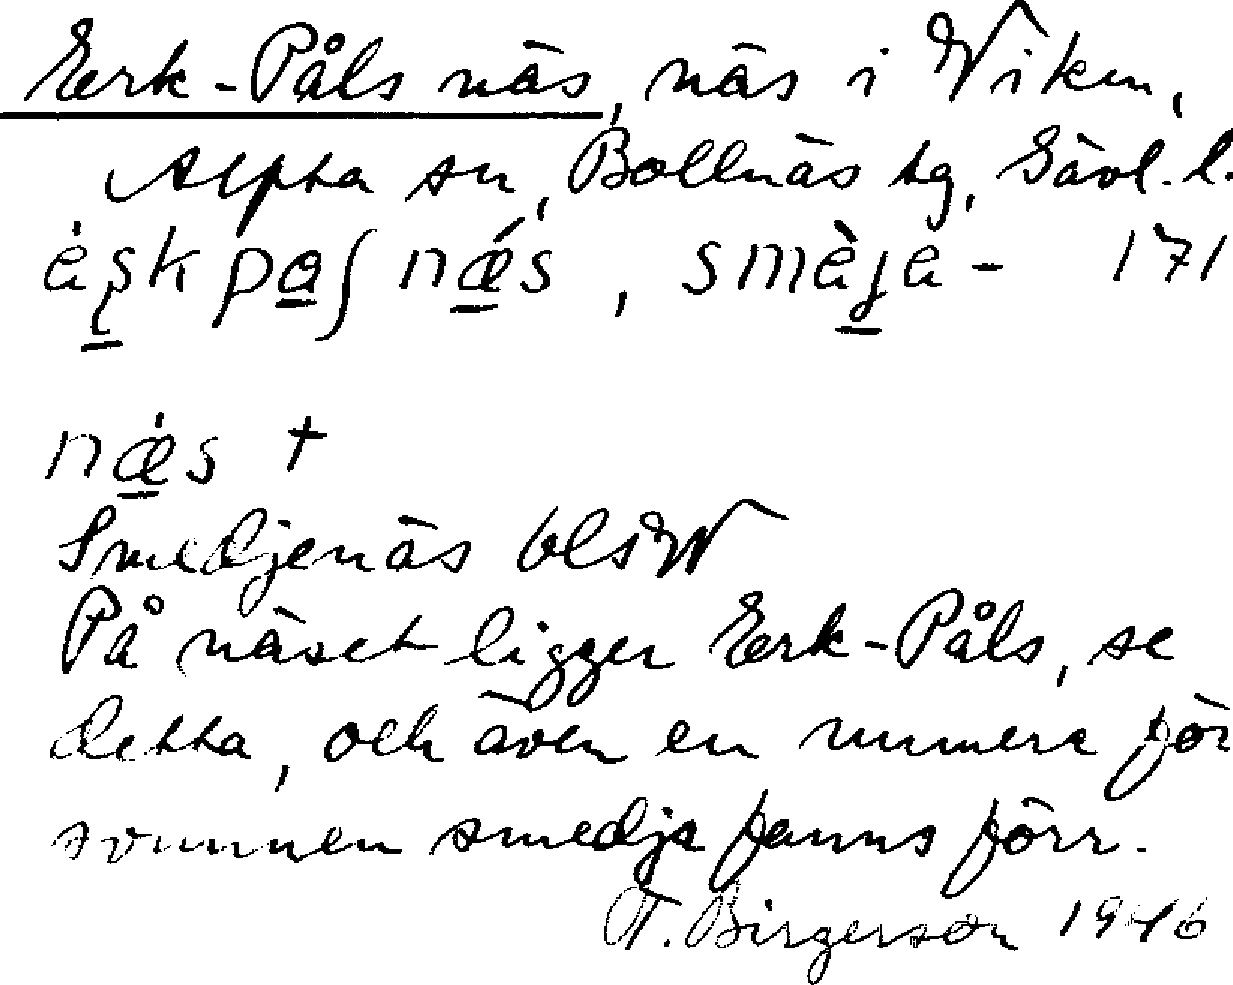 Eerk-Påls näs, näs i Viken,
Alfta sn, Bollnäs tg, Gävl. l.
nǽs, 171
nǽs +
Smedjenäs
På näset ligger Eerk-Påls, se
detta, och även en numera för
svunnen smedja fanns förr.
T. Birgerson 1946